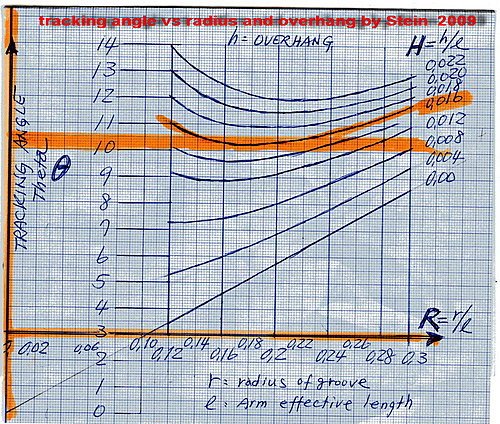 tracking angle vs radius and overhang by Stein 2009
h = OVERHANG
H = h/l
14
13
12
11
10
9
8
7
6
5
4
3
2
1
0
0,022
0,020
0,018
0,016
0,012
0,008
0,004
0,00
TRACKING ANGLE
Theta
θ
R = r/l
0,02 0,06 0,10 0,14 0,18 0,22 0,26
0,12 0,16 0,2 0,24 0,28 0,3
r = radius of groove
l = Arm effective length